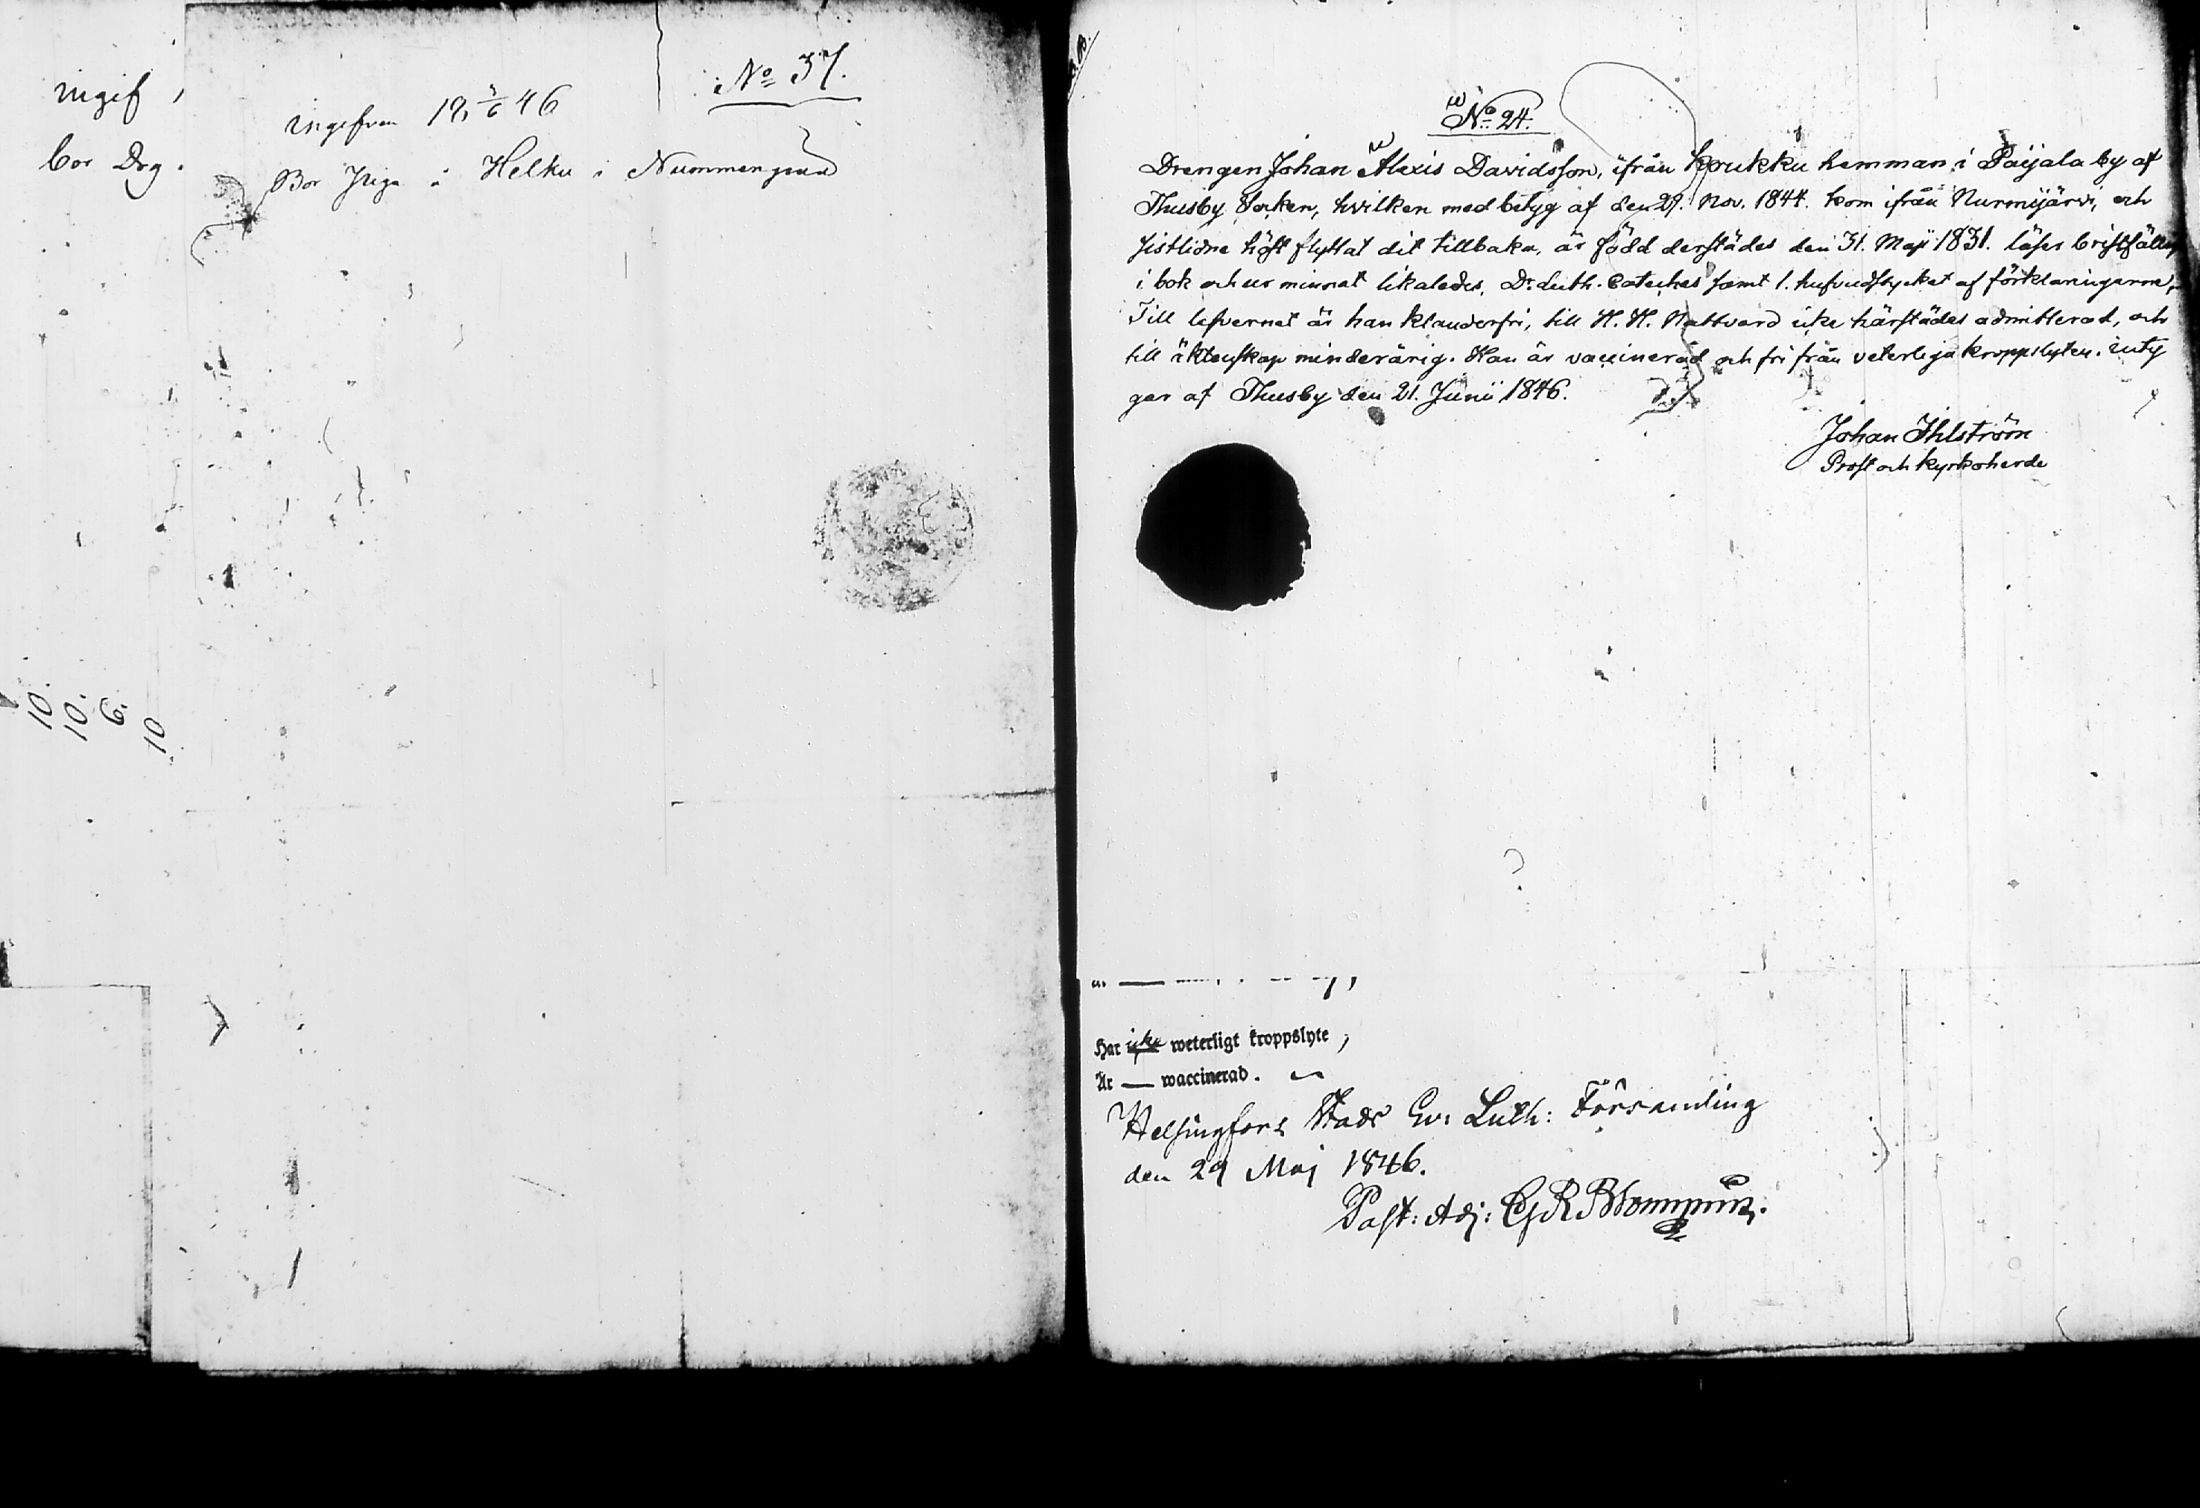 ingif
bor Drg.
No 37.
18 3/6 46
Bor Piga å Helku i Nummenpää
10.
10.
6.
10
No 24.
Drengen Johan Alexis Davidsson, ifrån Krukku hemman i Paijala by af
Thusby Socken, hvilken med betyg af den 29. Nov. 1844. kom ifrån Nurmijärvi, och
sistlidne höst flyttat dit tillbaka, är född derstädes den 31. Maji 1831. läser bristfälligt
i bok och ur minnet likaledes, Dr. Luth. Cateches samt 1. hufvudstycket af förklaringarne,
Till lefvernet är han klanderfri, till H. H. Nattvard icke härstädes admitterad, och
till äktenskap minderårig. Han är vaccinerad och fri från veterliga kroppslyten. inty
gar af Thusby den 21. Junii 1846.
Johan Ihlström
Prost och kyrkoherde
Har icke weterligt kroppslyte,
Är — waccinerad.
Helsingfors Stads Ev: Luth: Församling
den 29 Maj 1846.
Past: Adj: